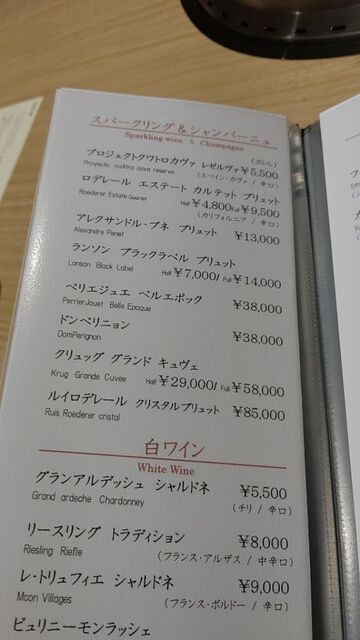 スパークリング & シャンパーニュ
Sparkling wine & Champagne
(ボトル)
プロジェクトクワトロカヴァ レゼルヴァ ¥5,500
Proyecto cu4tro cava reserve (スペイン・カヴァ / 辛口)
ロデレール エステート カルテット ブリュット
Roederer Estate Quartet Half ¥4,800/ Full ¥9,500
(カリフォルニア / 辛口)
アレクサンドル・プネ ブリュット ¥13,000
Alexandre Penet
ランソン ブラックラベル ブリュット
Lanson Black Label Half ¥7,000/ Full ¥14,000
ペリエジュエ ベルエポック ¥38,000
PerrierJouet Belle Epoque
ドンペリニョン ¥38,000
DomPerignon
クリュッグ グランド キュヴェ
Krug Grande Cuvee Half ¥29,000/ Full ¥58,000
ルイロデレール クリスタルブリュット ¥85,000
Ruis Roederer cristal
白ワイン
White Wine
グランアルデッシュ シャルドネ ¥5,500
Grand ardeche Chardonney (チリ / 辛口)
リースリング トラディション ¥8,000
Riesling Riefle (フランス・アルザス / 中辛口)
レ・トリュフィエ シャルドネ ¥9,000
Mcon Villages (フランス・ボルドー / 辛口)
ピュリニーモンラッシェ